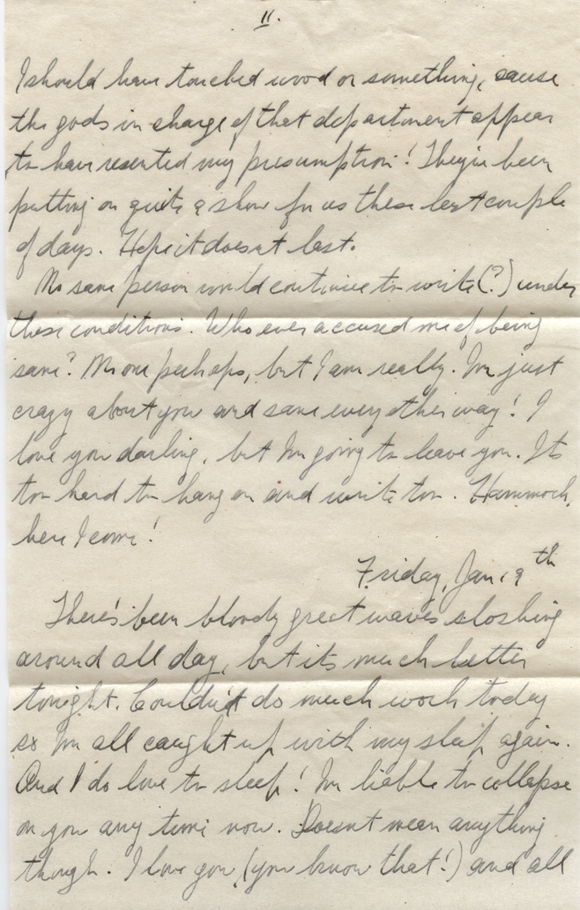 11.
I should have touched wood or something, cause
the gods in charge of that department appear
to have resented my presumption! They've been
putting on quite a show for us these last couple
of days. Hope it doesn't last.
No sane person would continue to write (?) under
these conditions. Who ever accused me of being
sane? No one perhaps, but I am really. I'm just
crazy about you and sane every other way! I
love you darling, but I'm going to leave you. Its
too hard to hang on and write too. Hammock,
here I come!
Friday, Jan 19th
There's been bloody great waves sloshing
around all day, but its much better
tonight. Couldn't do much work today
so I'm all caught up with my sleep again.
And I do love to sleep! I'm liable to collapse
on you any time now. Doesn't mean anything
though. I love you, (you know that!) and all